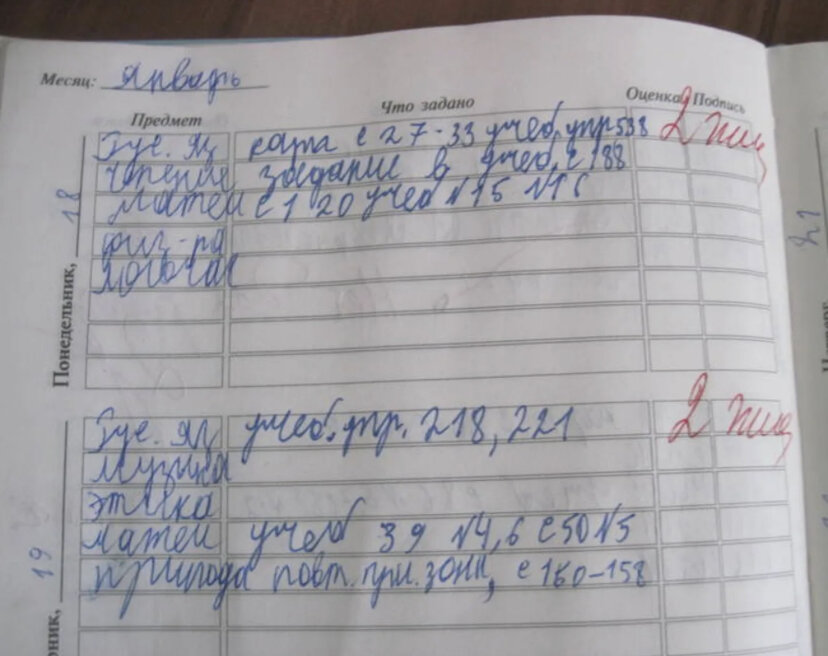 Месяц: Январь
Предмет Что задано Оценка Подпись
Понедельник, 18
Рус. яз с 27-33 учеб, упр 538 2
чтение задание в учеб, с 188
матем с 1 20 учеб N15 N16
физ-ра
2 1
19
Рус. яз учеб. упр. 218, 221 2
музыка
этика
матем учеб 39 N4,6 с50 N5
природа повт. при. зоны, с 150-158
ник,